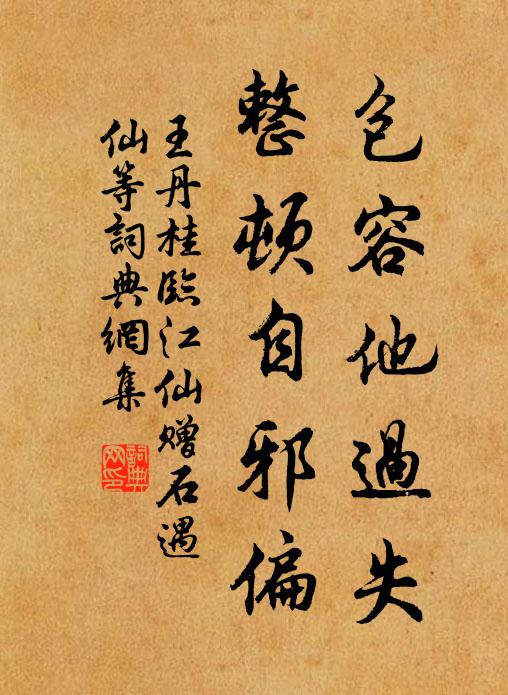 包容他過失
整頓自邪偏
王丹桂臨江仙赠石遇
仙等詞典網集
詞典网印